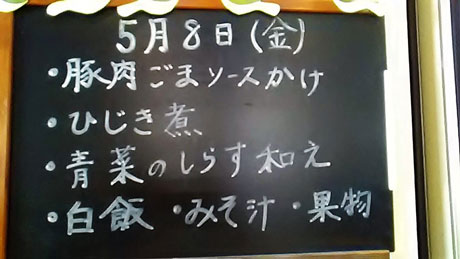 5月8日(金)
・豚肉ごまソースかけ
・ひじき煮
・青菜のしらす和え
・白飯 ・みそ汁 ・果物